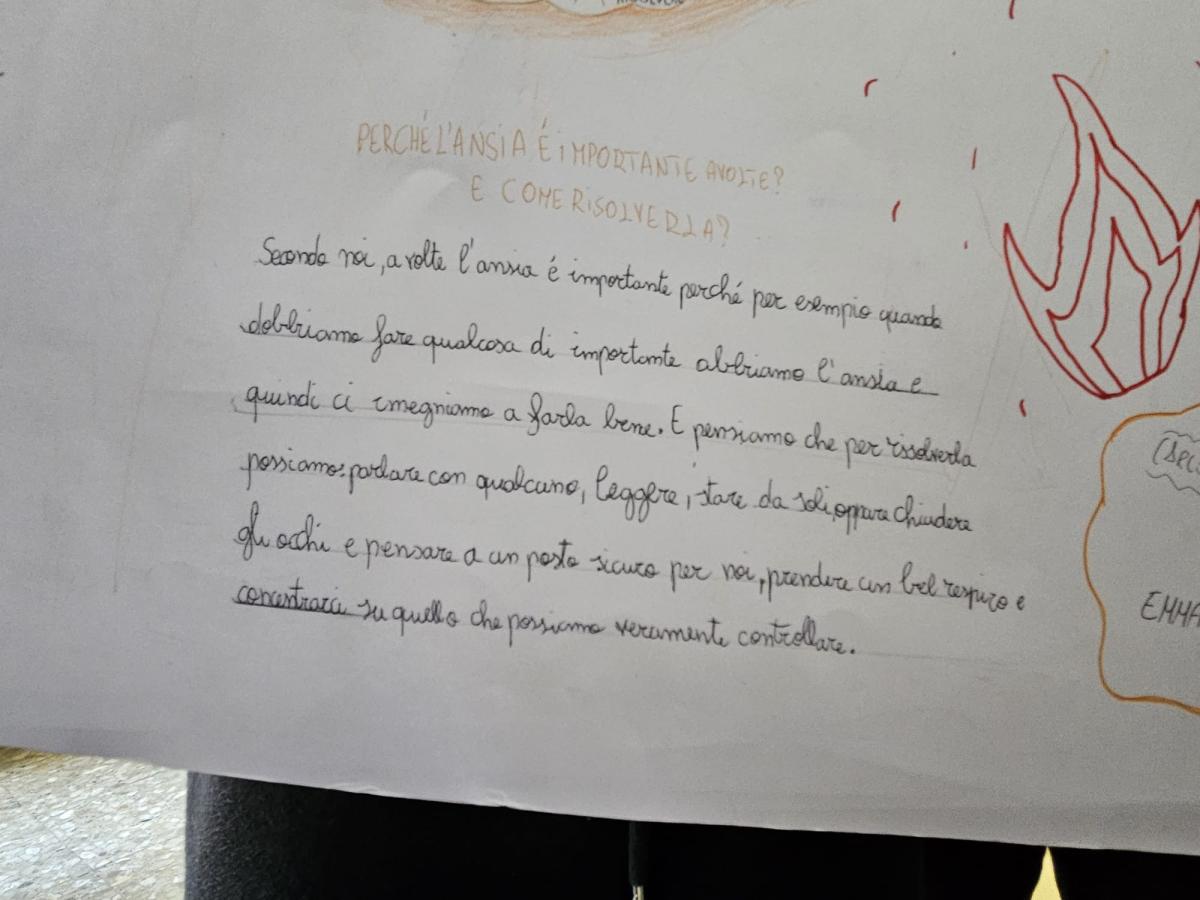 PERCHÉ L'ANSIA É IMPORTANTE AVOLTE?
E COME RISOLVERLA?
Secondo noi, a volte l'ansia é importante perché per esempio quando
dobbiamo fare qualcosa di importante abbiamo l'ansia e
quindi ci impegniamo a farla bene. E pensiamo che per risolverla
possiamo: parlare con qualcuno, leggere, stare da soli, oppure chiudere
gli occhi e pensare a un posto sicuro per noi, prendere un bel respiro e
concentrarci su quello che possiamo veramente controllare.
EMMA